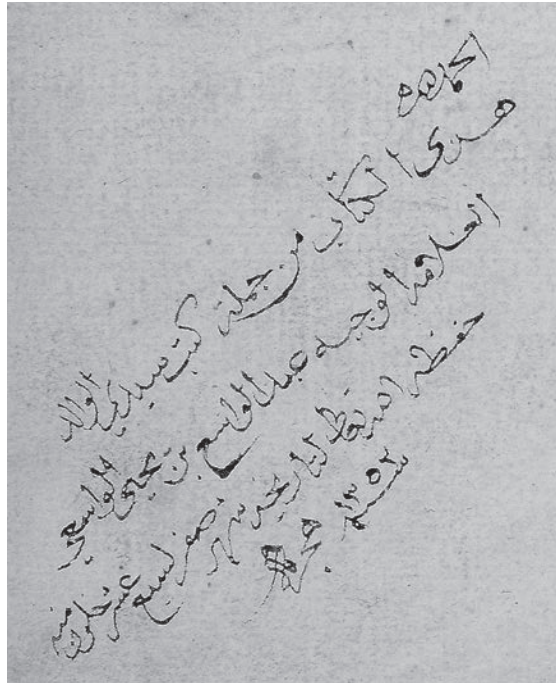 الحمد لله
هذا الكتاب من جملة كتب سيدي الوالد
العلامة الوجيه عبد الواسع بن يحيى الواسعي
حفظه الله تعالى بتاريخه شهر صفر لسبع عشر خلون منه
سنة ١٣٥٢ هجرية